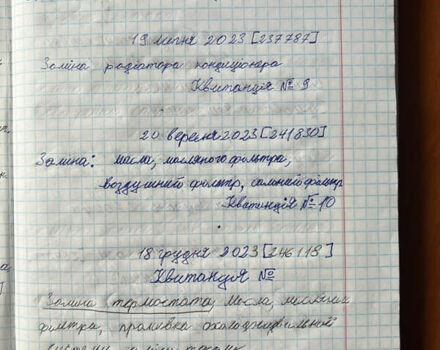 19 липня 2023 [237787]
Заміна радіатора кондиціонера
Квитанція № 9
20 вересня 2023 [241830]
Заміна: масла, масляного фільтра,
воздушний фільтр, салоний фільтр
Квитанція № 10
18 грудня 2023 [246118]
Квитанція №
Заміна термостата, масла,
фільтра, промивка